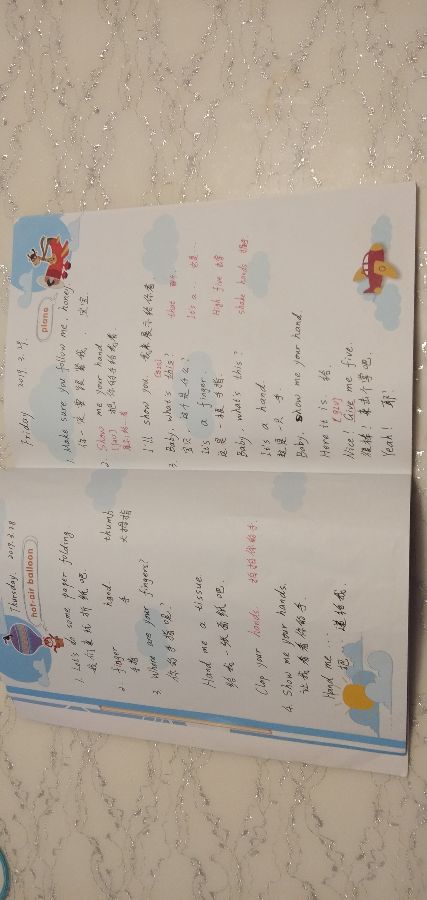 Thursday. 2019.3.28
hot-air balloon
1. Let's do some paper folding.
我们来玩折纸吧
2 finger hand thumb
手指 手 大拇指
3. Where are your fingers?
你的手指呢?
Hand me a tissue.
给我一张面纸吧.
Clap your hands. 拍拍你的手.
4. Show me your hands.
让我看看你的手.
Hand me ... 递给我
把
Friday 2019.3.29
plane
1. Make sure you follow me, honey
你一定要跟着我, 宝宝.
2 Show me your hand
把你的手给我看
展示给看
I'll show you. 我来展示给你看
3. Baby, what's this? that 那个
宝贝 这个是什么?
It's a finger. It's a ... 这是...
这是一根手指.
Baby, what's this? High five 击掌
It's a hand. shake hands 握手
这是一只手
Baby, show me your hand.
Here it is. 给.
Nice! Give me five.
很棒! 来击个掌吧.
Yeah! 耶!